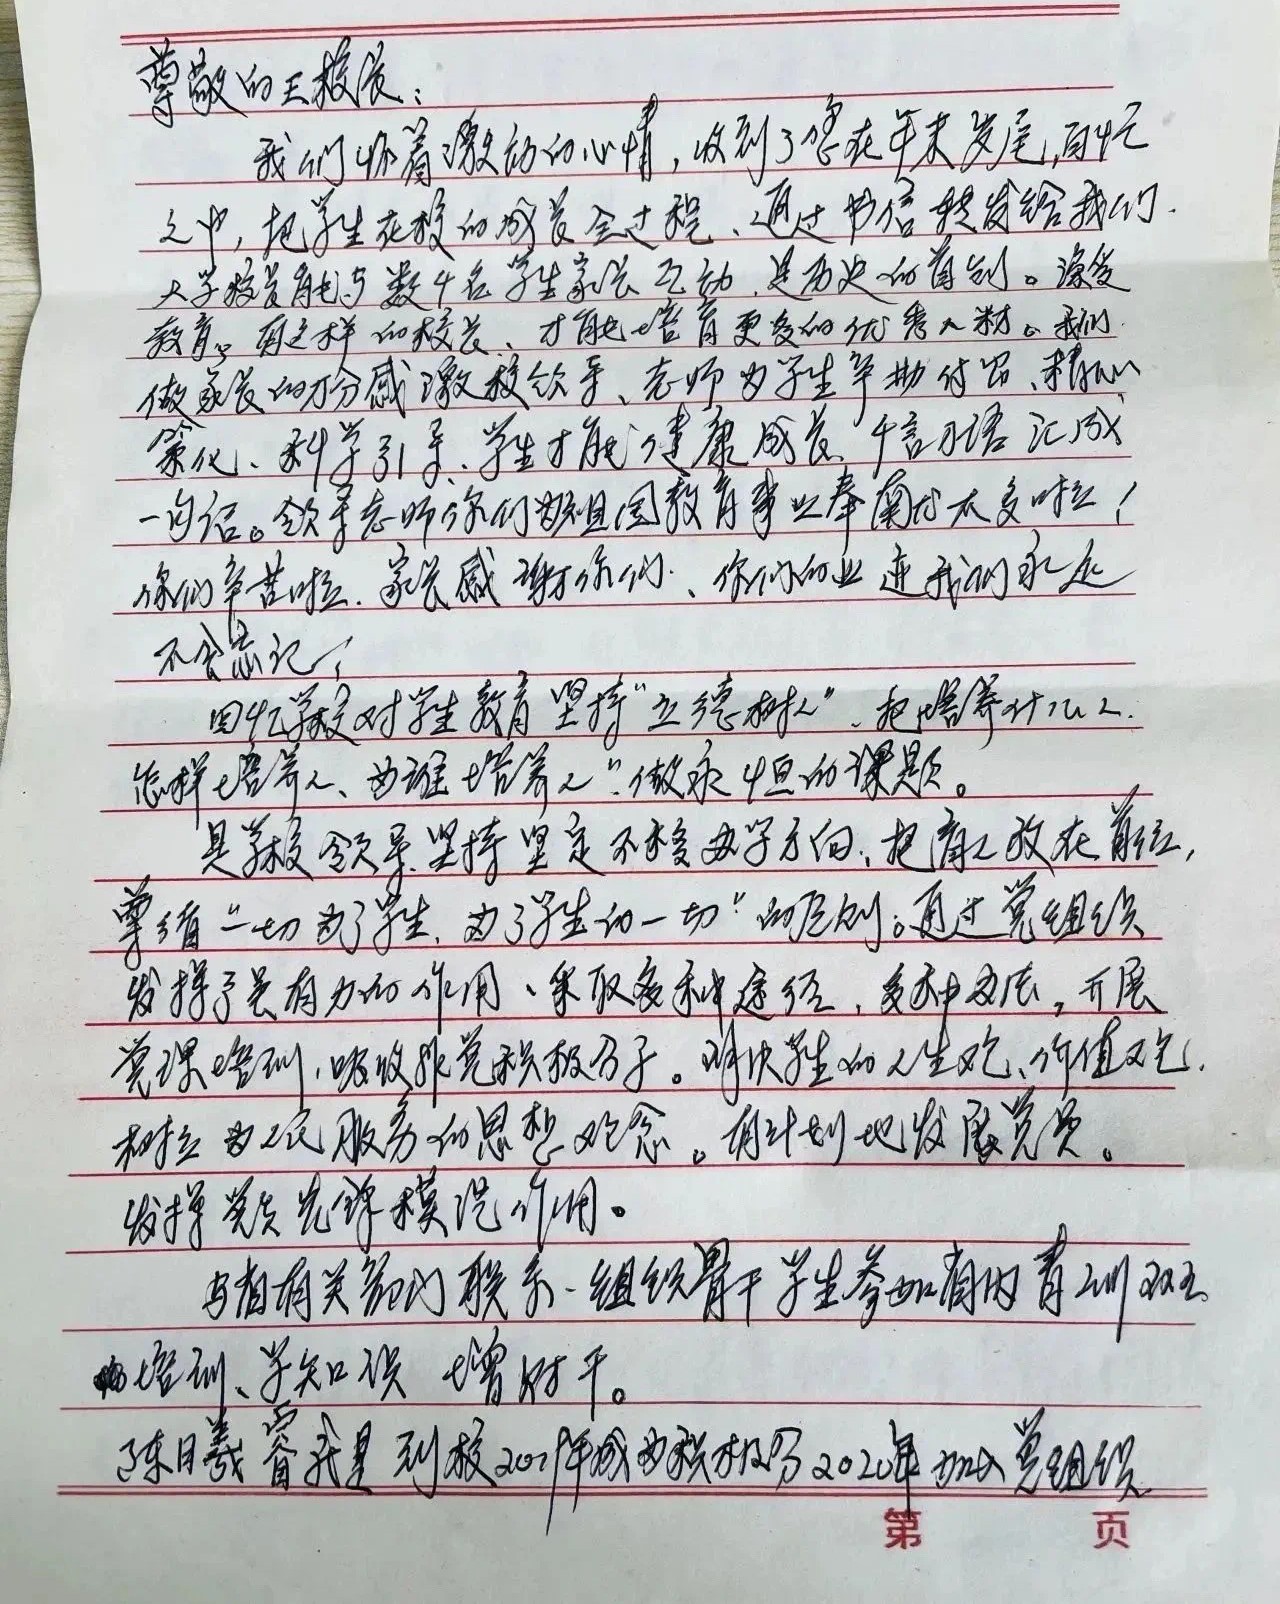 尊敬的王校长：
我们怀着激动的心情，收到了您在年末岁尾，百忙
之中，把学生在校的成长全过程、通过书信转发给我们.
大学校长能与数千名学生家长互动，是历史的首创。深受
教育。有这样的校长、才能培育更多的优秀人材。我们
做家长的万分感激校领导、老师为学生辛勤付出、精心
策化、科学引导、学生才能健康成长、千言万语汇成
一句话。领导老师你们为祖国教育事业奉献太多啦！
你们辛苦啦.家长感谢你们、你们的业迹我们永远
不会忘记！
回忆学校对学生教育坚持“立德树人”、把培养什么人.
怎样培养人、为谁培养人”.做永恒的课题。
是学校领导.坚持坚定不移办学方向、把育人放在首位，
遵循“一切为了学生，为了学生的一切”的原则。通过党组织
发挥了最有力的作用、采取多种途径，多种办法，开展
党课培训，吸收批党积极分子。解决学生的人生观、价值观.
树立为人民服务的思想观念。有计划地发展党员。
发挥党员先锋模范作用。
与省有关部门联系、组织骨干学生参加省内青训班
培训、学知识 增才干。
陈日曦睿就是到校2019年成为积极分2020年加入党组织
第 页